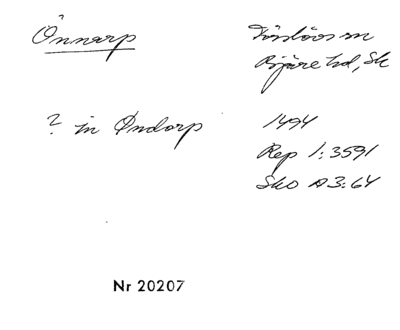 Önnarp
Förslövs sn
Bjäre hd, Sk
? in Øndorp
1494
Rep 1:3591
Sko A3:64
Nr 20207